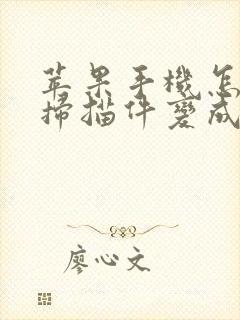 苹果手機怎
掃描件變成
廖心文